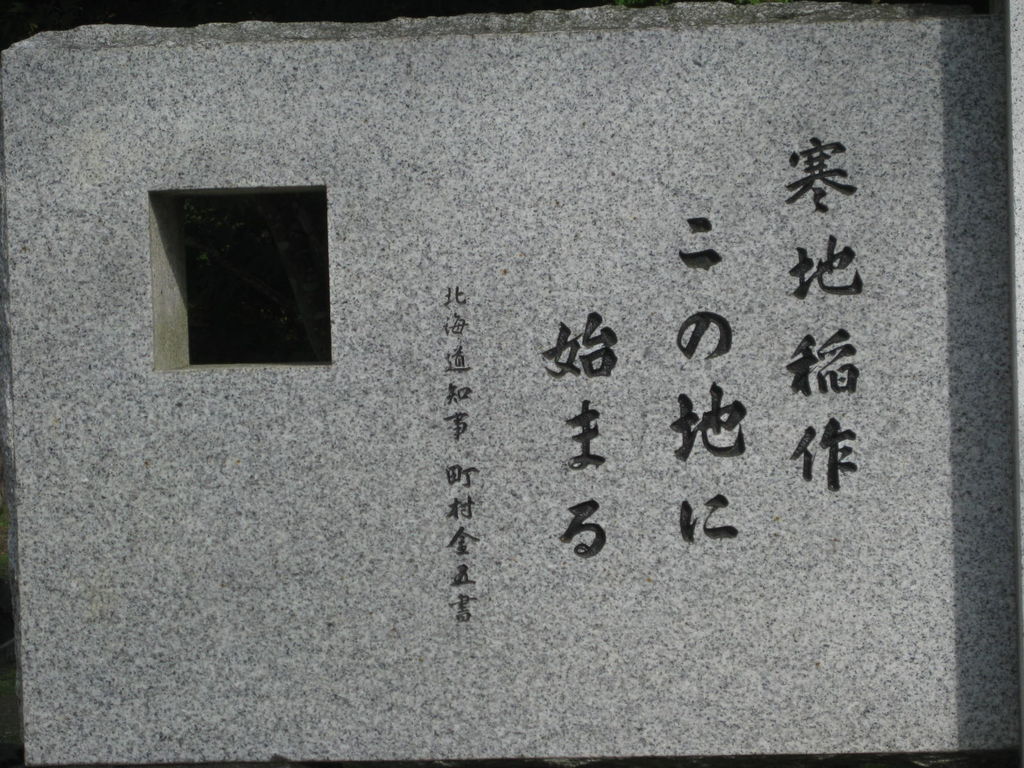 寒地稲作
この地に
始まる
北海道知事 町村金五書